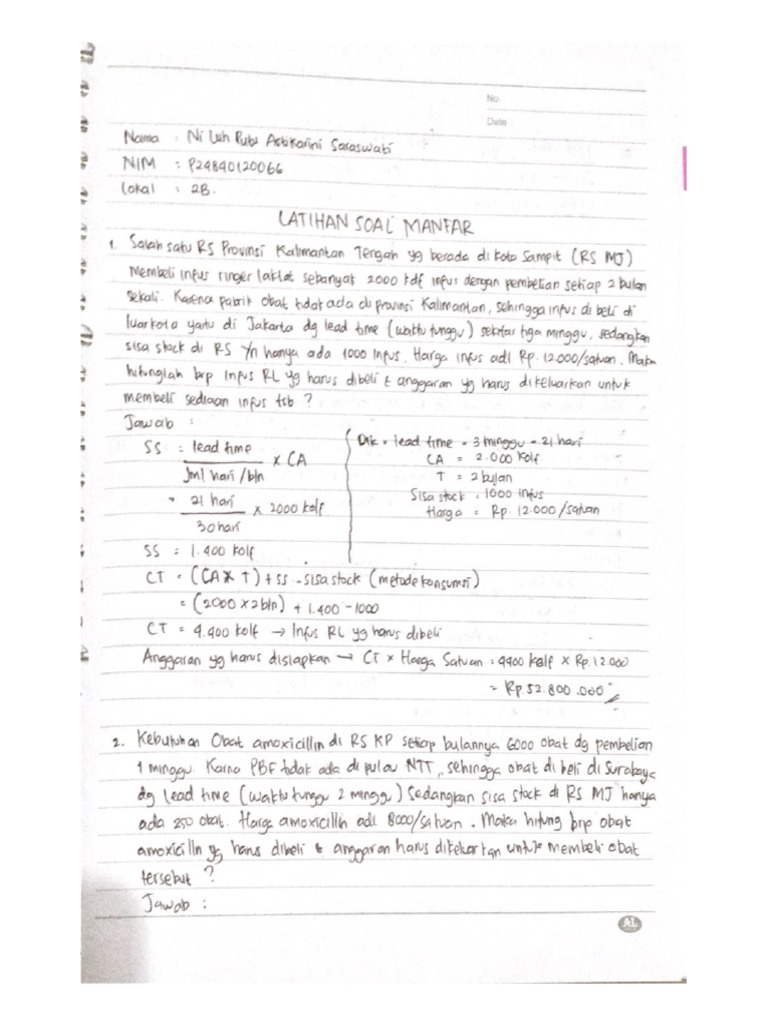 No
Date
Nama : Ni Luh Putu Astikarini Saraswati
NIM : P24840120066
Lokal : 2B.
LATIHAN SOAL MANFAR
1. Salah satu RS Provinsi Kalimantan Tengah yg berada di kota Sampit (RS MJ)
Membeli infus ringer laktat sebanyak 2000 kolf infus dengan pembelian setiap 2 bulan
sekali. Karena pabrik obat tidak ada di provinsi Kalimantan, sehingga infus di beli di
luar kota yaitu di Jakarta dg lead time (waktu tunggu) sekitar tiga minggu, sedangkan
sisa stock di RS y/n hanya ada 1000 infus. Harga infus adl Rp. 12.000/satuan. Maka
hitunglah brp Infus RL yg harus dibeli & anggaran yg harus dikeluarkan untuk
membeli sediaan infus tsb ?
Jawab :
SS = lead time
Jml hari /bln
× CA
= 21 hari
30 hari
× 2000 kolf
SS = 1.400 kolf
Dik = lead time = 3 minggu = 21 hari
CA = 2.000 kolf
T = 2 bulan
Sisa stock = 1000 infus
Harga = Rp. 12.000 /satuan
CT = (CA × T) + SS - sisa stock (metode konsumsi)
= (2000 × 2 bln) + 1.400 - 1000
CT = 4.400 kolf → Infus RL yg harus dibeli
Anggaran yg harus disiapkan → CT × Harga Satuan = 4400 kolf × Rp. 12.000
= Rp 52.800.000
2. Kebutuhan Obat amoxicillin di RS KP setiap bulannya 6000 obat dg pembelian
1 minggu Karna PBF tidak ada di pulau NTT, sehingga obat di beli di Surabaya
dg lead time (waktu tunggu 2 minggu) sedangkan sisa stock di RS MJ hanya
ada 250 obat. Harga amoxicillin adl 8000/satuan. Maka hitung brp obat
amoxicilln yg harus dibeli & anggaran harus dikeluarkan untuk membeli obat
tersebut ?
Jawab :
AL